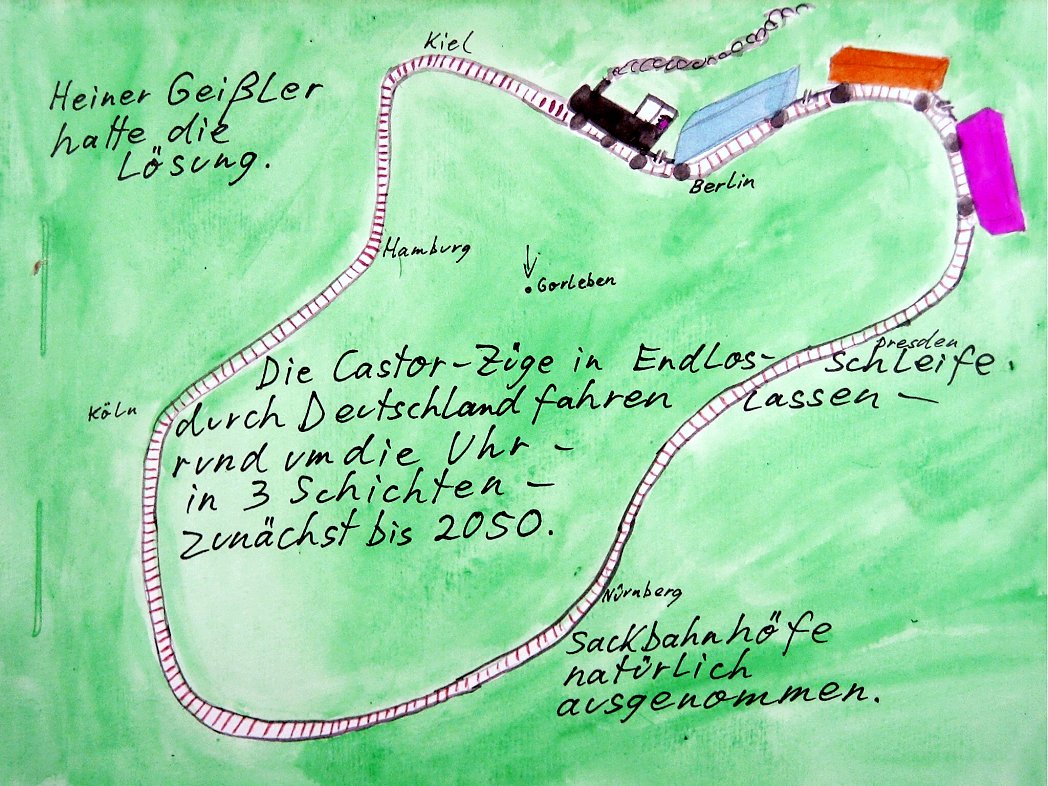 Kiel
Heiner Geißler
hatte die
Lösung.
Berlin
Hamburg
Gorleben
Dresden
Die Castor-Züge in Endlos- schleife.
Köln
durch Deutschland fahren lassen -
rund um die Uhr -
in 3 Schichten -
zunächst bis 2050.
Nürnberg
Sackbahnhöfe
natürlich
ausgenommen.